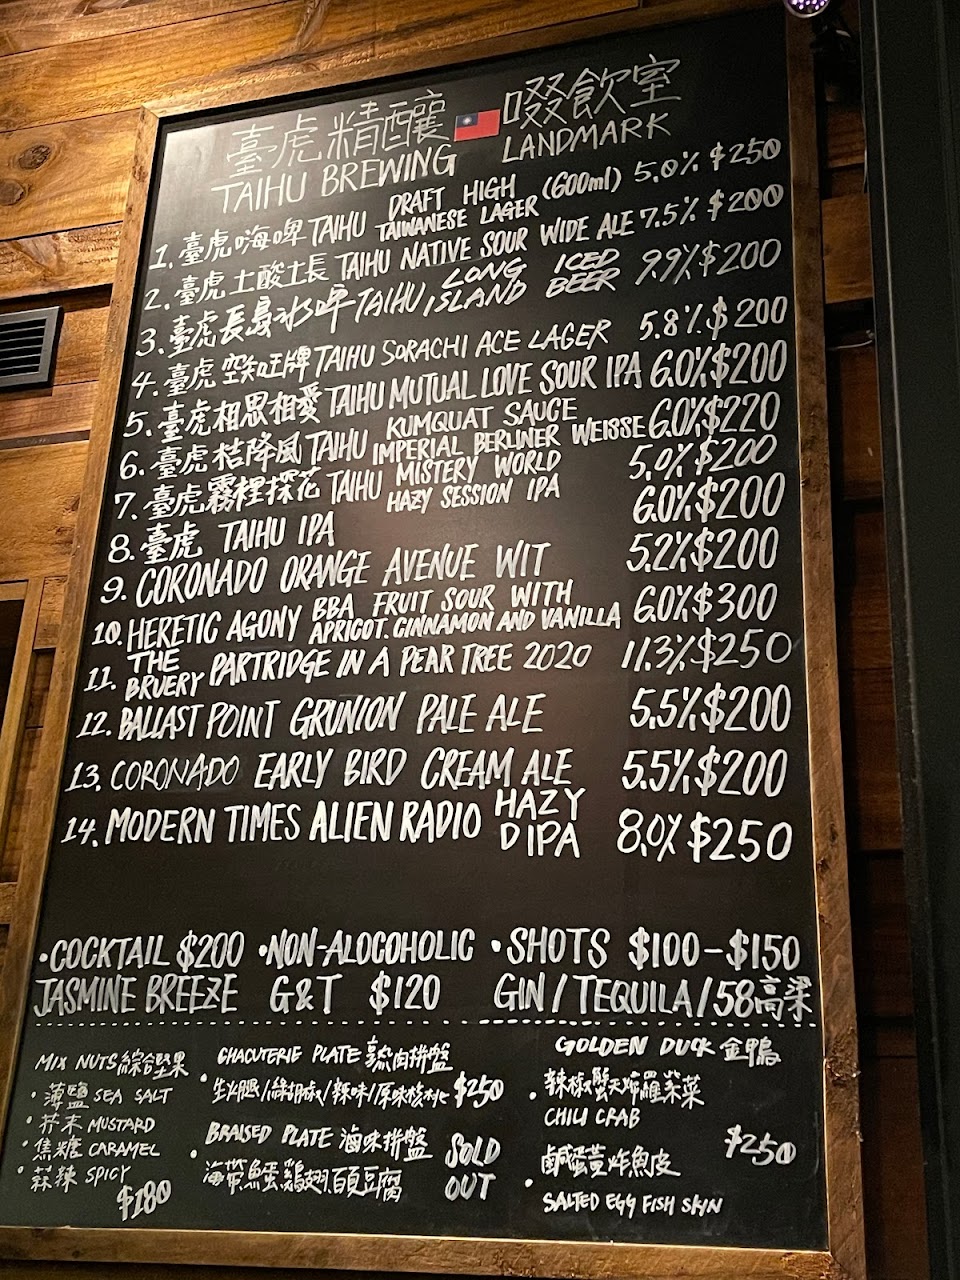 臺虎精釀 啜飲室
TAIHU BREWING LANDMARK
1. 臺虎嗨啤 TAIHU DRAFT HIGH TAIWANESE LAGER (600ml) 5.0% $250
2. 臺虎土酸土長 TAIHU NATIVE SOUR WIDE ALE 7.5% $200
3. 臺虎長島冰啤 TAIHU LONG ISLAND ICED BEER 9.9% $200
4. 臺虎空知王牌 TAIHU SORACHI ACE LAGER 5.8% $200
5. 臺虎相思相愛 TAIHU MUTUAL LOVE SOUR IPA 6.0% $200
6. 臺虎桔降風 TAIHU KUMQUAT SAUCE IMPERIAL BERLINER WEISSE 6.0% $220
7. 臺虎霧裡探花 TAIHU MISTERY WORLD HAZY SESSION IPA 5.0% $200
8. 臺虎 TAIHU IPA 6.0% $200
9. CORONADO ORANGE AVENUE WIT 5.2% $200
10. HERETIC AGONY BBA FRUIT SOUR WITH APRICOT. CINNAMON AND VANILLA 6.0% $300
11. THE BRUERY PARTRIDGE IN A PEAR TREE 2020 11.3% $250
12. BALLAST POINT GRUNION PALE ALE 5.5% $200
13. CORONADO EARLY BIRD CREAM ALE 5.5% $200
14. MODERN TIMES ALIEN RADIO HAZY DIPA 8.0% $250
•COCKTAIL $200
JASMINE BREEZE
•NON-ALOCOHOLIC
G&T $120
•SHOTS $100-$150
GIN / TEQUILA / 58高粱
MIX NUTS 綜合堅果
•薄鹽 SEA SALT
•芥末 MUSTARD
•焦糖 CARAMEL
•蒜辣 SPICY
$180
CHACUTERIE PLATE 熟肉拼盤
•生火腿/綠胡椒/辣味/原味核桃 $250
BRAISED PLATE 滷味拼盤
•海帶 雞翅 百頁豆腐
SOLD OUT
GOLDEN DUCK 金鴨
•辣椒蟹天婦羅紫菜
CHILI CRAB
•鹹蛋黃炸魚皮
SALTED EGG FISH SKIN
$250